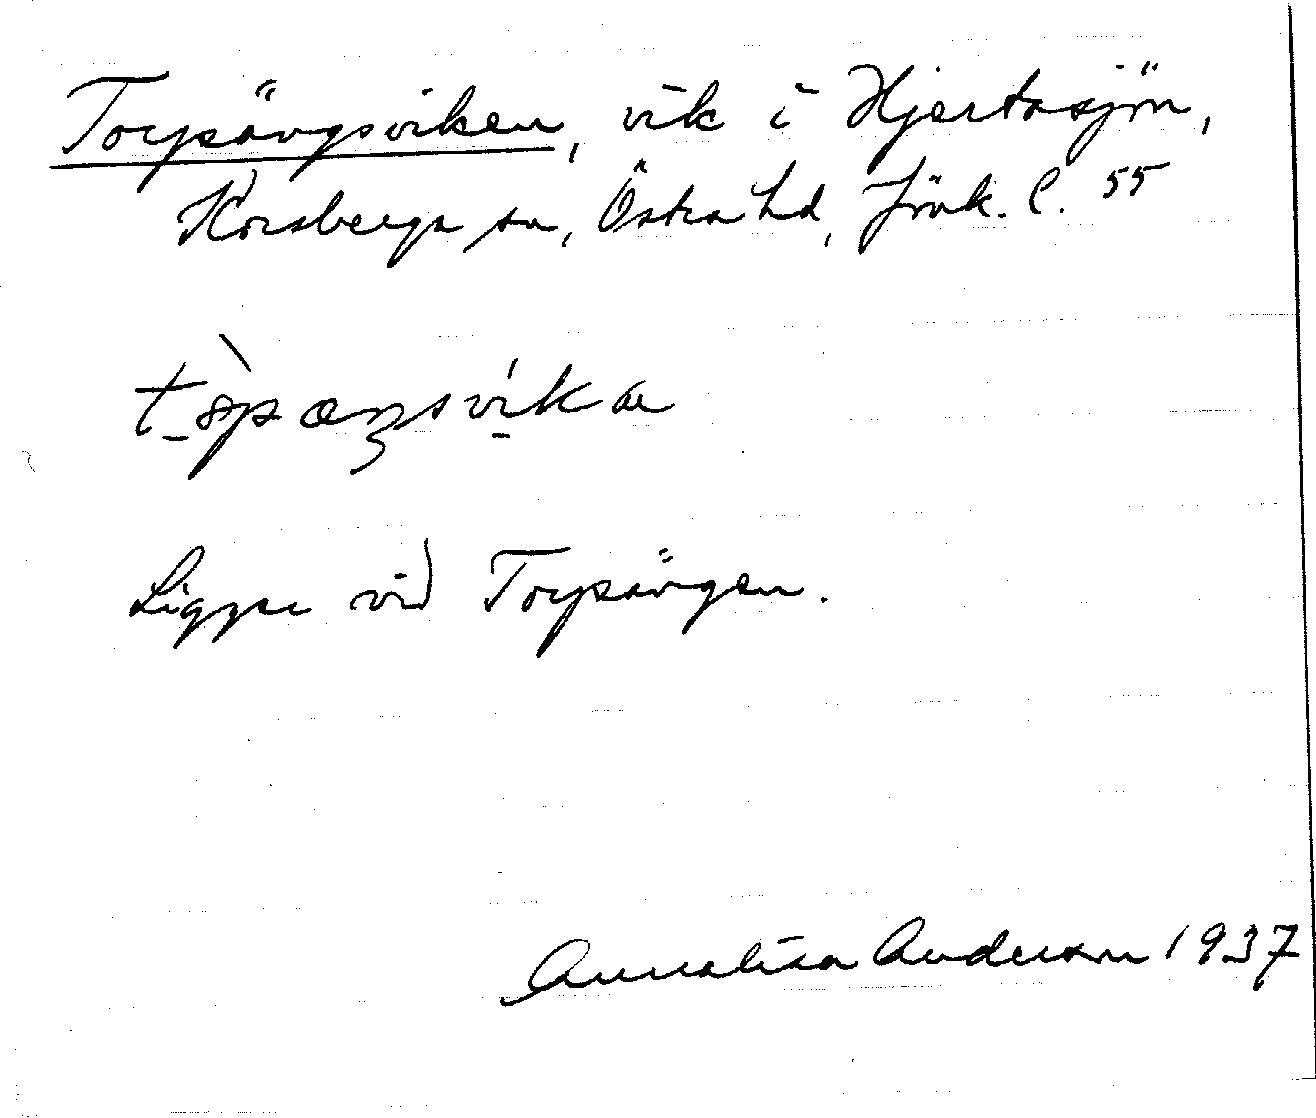 Torpängsviken, vik i Hjertasjön,
Korsberga sn, Östra hd, Jönk. l. 55
Ligger vid Torpängen.
Annalisa Anderson 1937